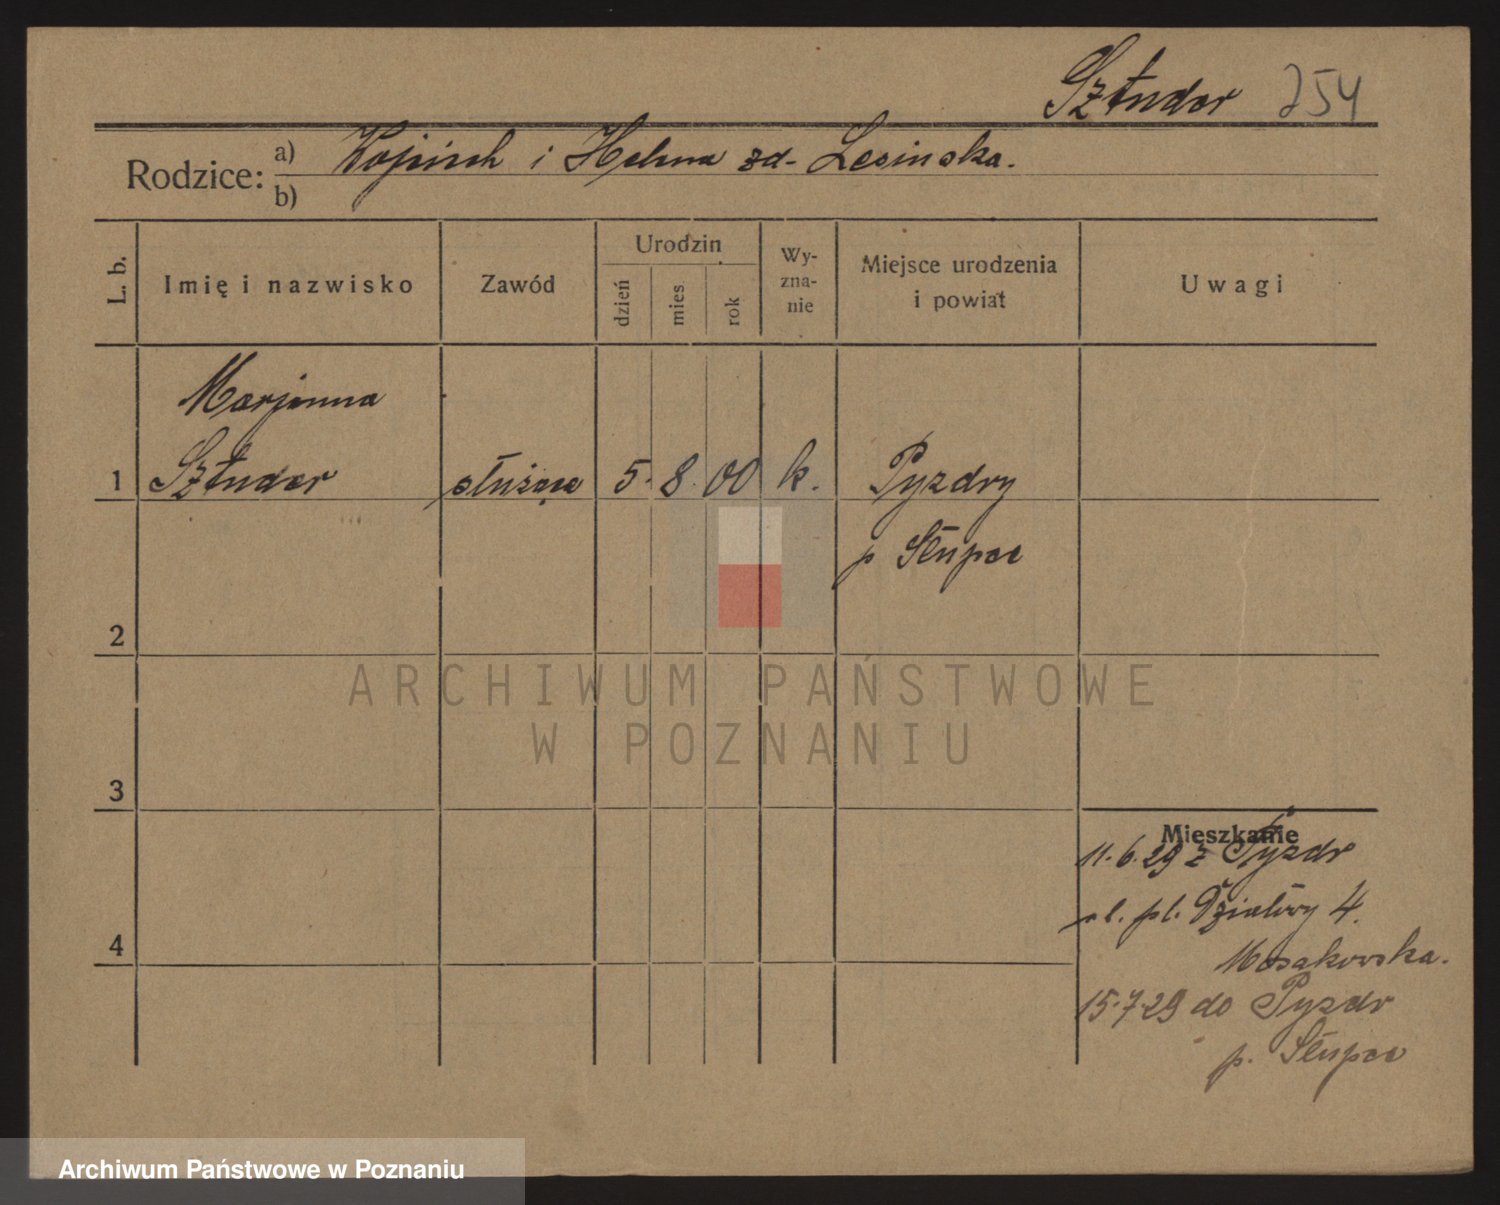 Sztuder 254
Rodzice: a) Wojciech i Helena zd- Lesinska.
b)
L. b. Imię i nazwisko Zawód Urodzin dzień mies. rok Wyznanie Miejsce urodzenia i powiat Uwagi
Marjanna
1 Sztuder służąca 5. 8. 00 k. Pyzdry
p Słupca
2
ARCHIWUM PAŃSTWOWE
W POZNANIU
3
Mieszkanie
11.6.29 z Pyzdr
pl. Działowy 4.
Mosakowska.
4
15.7.29 do Pyzdr
p. Słupca
Archiwum Państwowe w Poznaniu